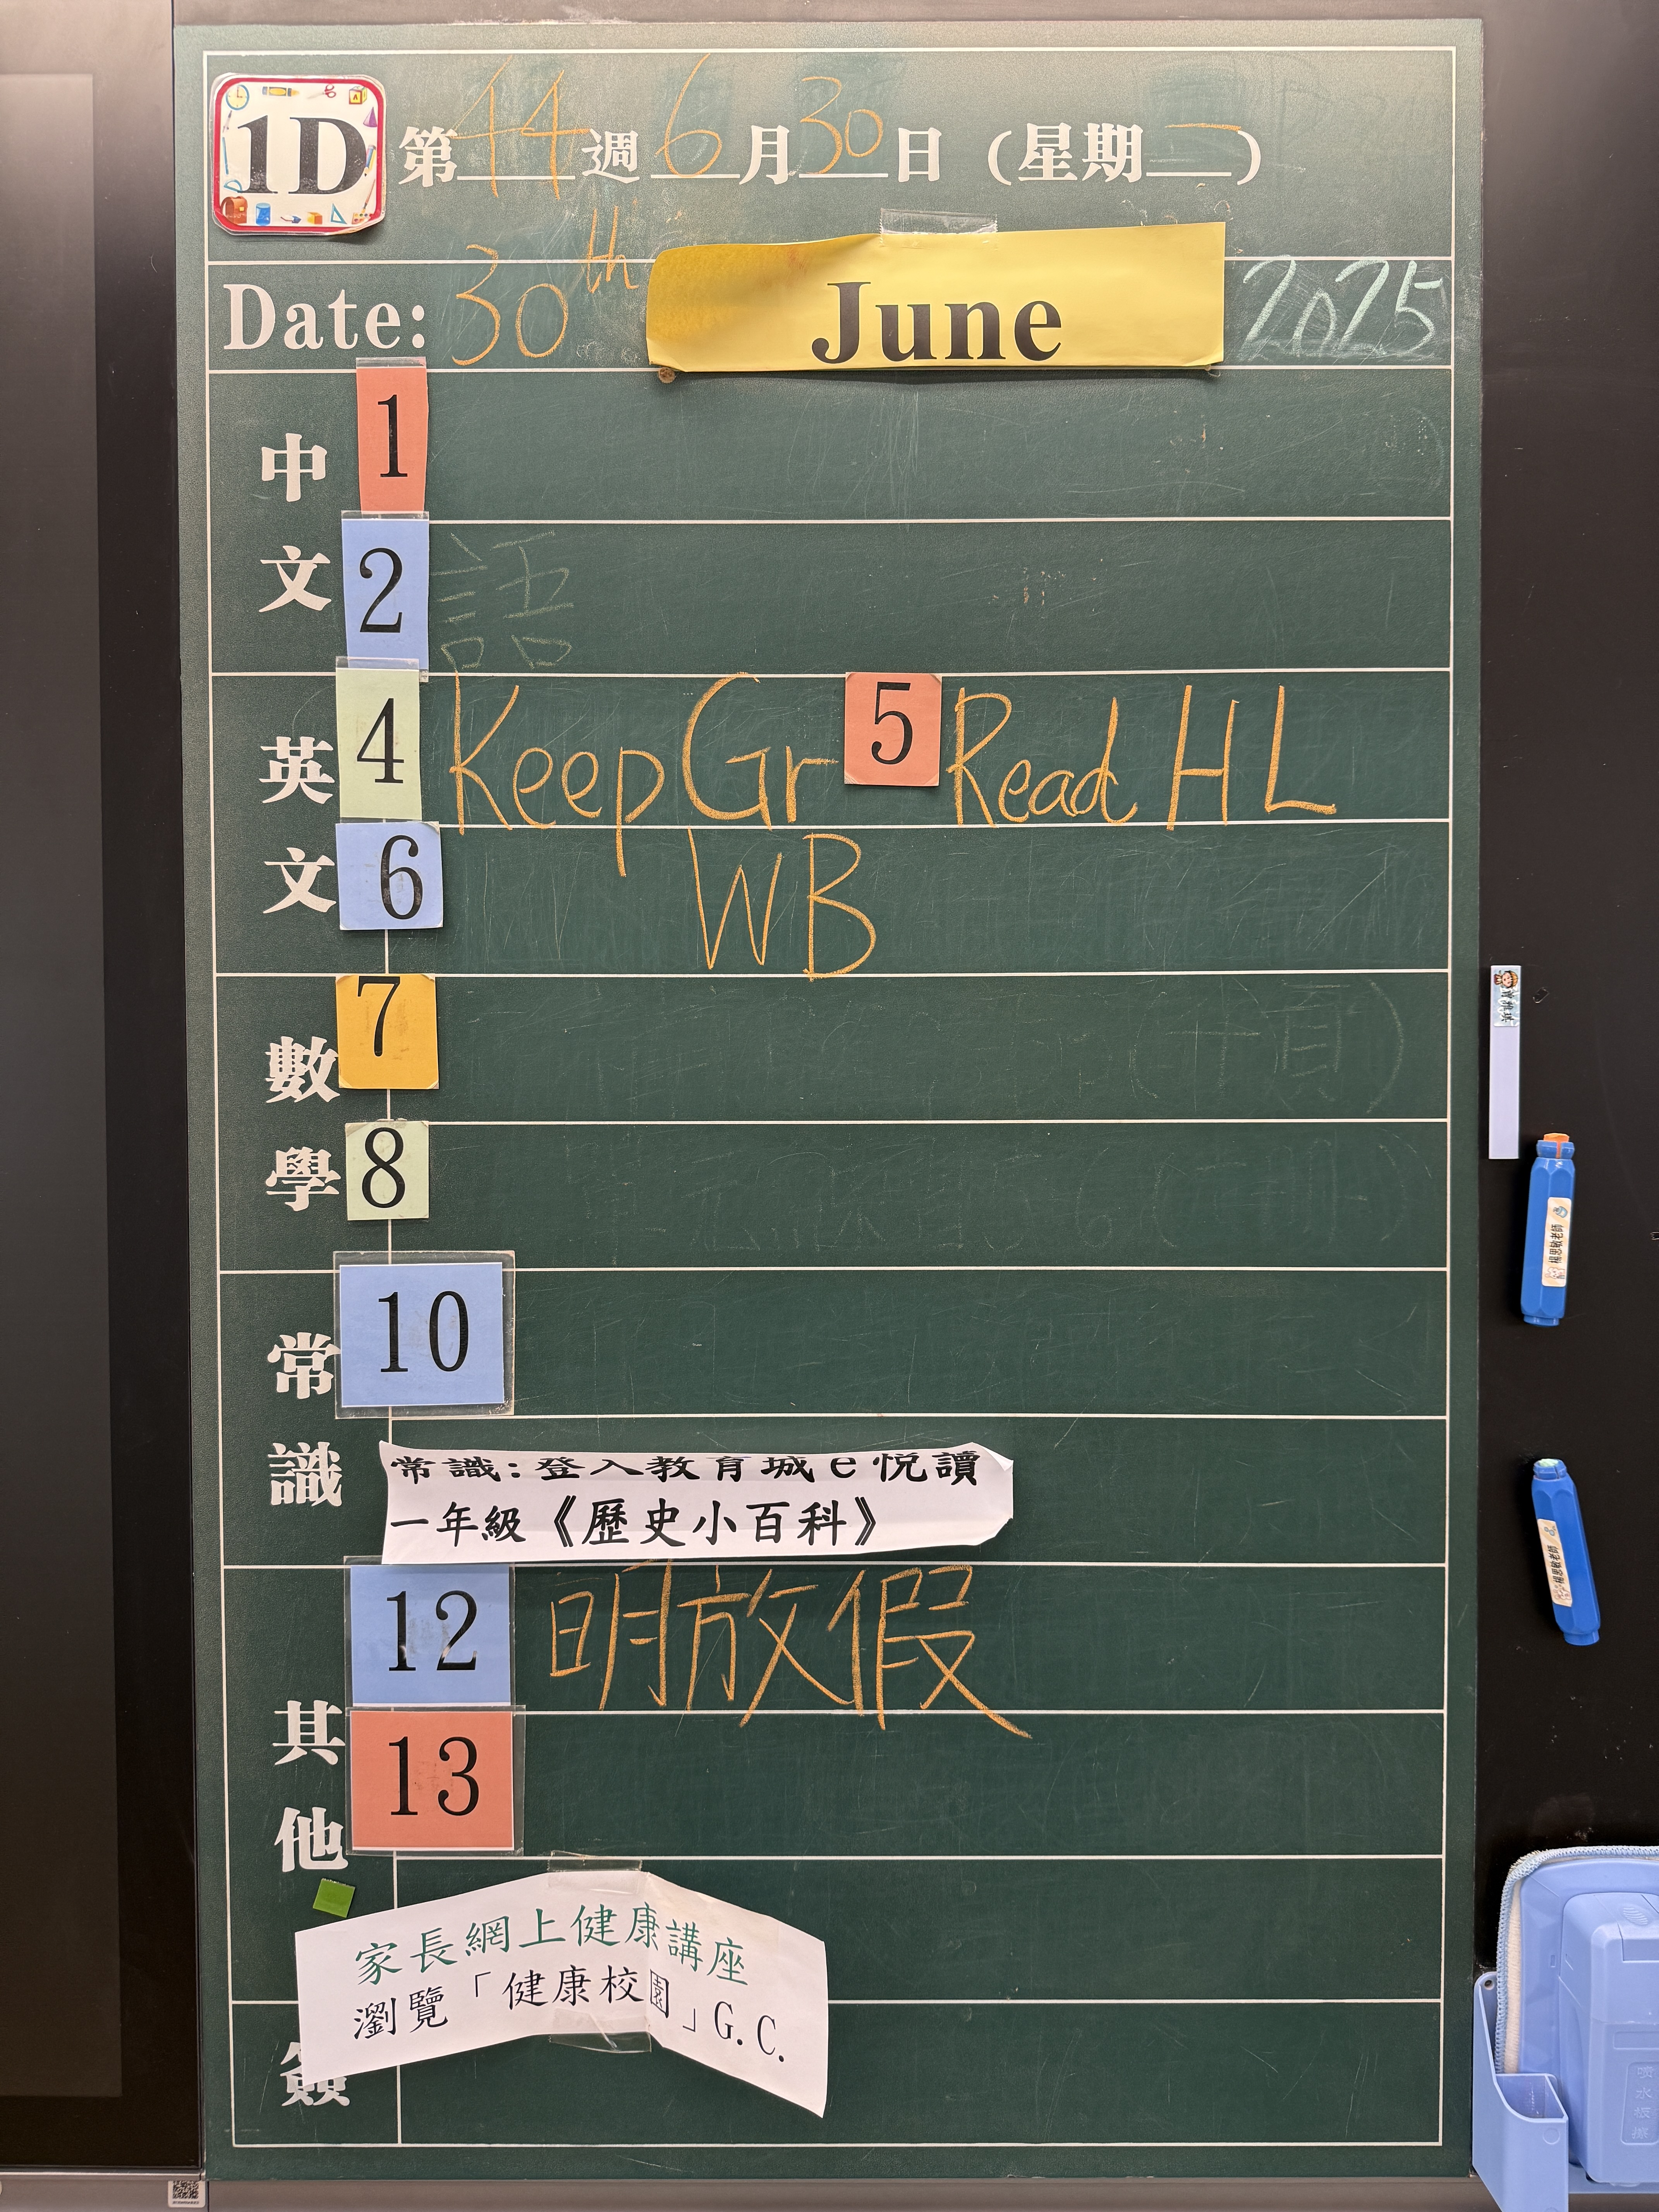 1D 第44週6月30日(星期一)
Date: 30th June 2025
中文
1
2 語
英文
4 Keep Gr 5 Read HL
6 WB
數學
7
8
常識
10
常識:登入教育城e悅讀
一年級《歷史小百科》
其他
12 明放假
13
家長網上健康講座
瀏覽「健康校園」G.C.
簽